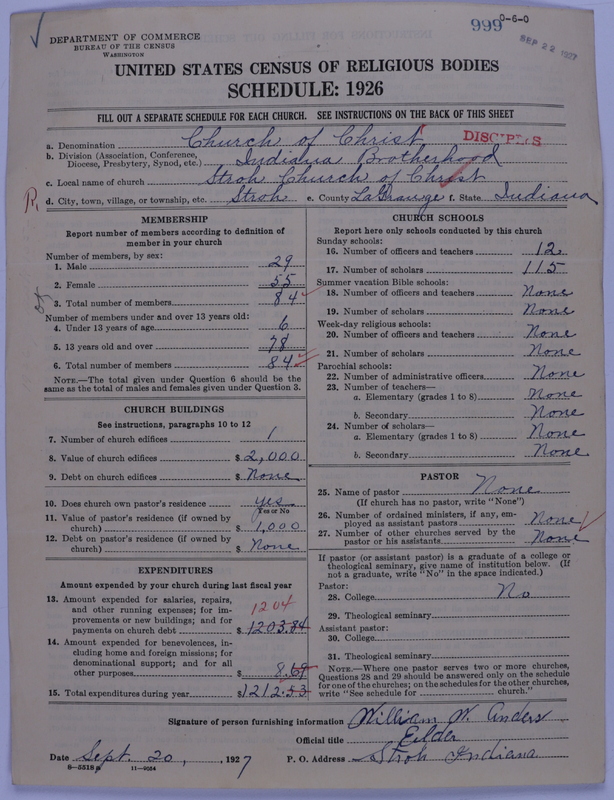 999
0-6-0
SEP 22 1927
DEPARTMENT OF COMMERCE
BUREAU OF THE CENSUS
WASHINGTON
UNITED STATES CENSUS OF RELIGIOUS BODIES
SCHEDULE: 1926
FILL OUT A SEPARATE SCHEDULE FOR EACH CHURCH. SEE INSTRUCTIONS ON THE BACK OF THIS SHEET
a. Denomination Church of Christ DISCIPLES
b. Division (Association, Conference, Diocese, Presbytery, Synod, etc.) Indiana Brotherhood
c. Local name of church Stroh Church of Christ
R
d. City, town, village, or township, etc. Stroh e. County LaGrange f. State Indiana
MEMBERSHIP
Report number of members according to definition of
member in your church
Number of members, by sex:
1. Male 29
2. Female 55
3. Total number of members 84
Number of members under and over 13 years old:
4. Under 13 years of age 6
5. 13 years old and over 78
6. Total number of members 84
NOTE.—The total given under Question 6 should be
same as the total of males and females given under Question 3.
CHURCH BUILDINGS
See instructions, paragraphs 10 to 12
7. Number of church edifices 1
8. Value of church edifices $ 2,000
9. Debt on church edifices $ None
10. Does church own pastor's residence? yes
Yes or No
11. Value of pastor's residence (if owned by
church) $ 1,000
12. Debt on pastor's residence (if owned by
church) $ None
EXPENDITURES
Amount expended by your church during last fiscal year
13. Amount expended for salaries, repairs,
and other running expenses; for im-
provements or new buildings; and for
payments on church debt $ 1203.84
1204
14. Amount expended for benevolences, in-
cluding home and foreign missions; for
denominational support; and for all
other purposes $ 8.69
15. Total expenditures during year $ 1212.53
CHURCH SCHOOLS
Report here only schools conducted by this church
Sunday schools:
16. Number of officers and teachers 12
17. Number of scholars 115
Summer vacation Bible schools:
18. Number of officers and teachers None
19. Number of scholars None
Week-day religious schools:
20. Number of officers and teachers None
21. Number of scholars None
Parochial schools:
22. Number of administrative officers None
23. Number of teachers—
a. Elementary (grades 1 to 8) None
b. Secondary None
24. Number of scholars—
a. Elementary (grades 1 to 8) None
b. Secondary None
PASTOR
25. Name of pastor None
(If church has no pastor, write "None")
26. Number of ordained ministers, if any, em-
ployed as assistant pastors None
27. Number of other churches served by the
pastor or his assistants None
If pastor (or assistant pastor) is a graduate of a college or
theological seminary, give name of institution below. (If
not a graduate, write "No" in the space indicated.)
Pastor:
28. College No
29. Theological seminary
Assistant pastor:
30. College
31. Theological seminary
NOTE.—Where one pastor serves two or more churches,
Questions 28 and 29 should be answered only on the schedule
for one of the churches; on the schedules for the other churches,
write "See schedule for church."
Signature of person furnishing information William W. Anders
Official title Eilder
Date Sept. 20, , 1927 P. O. Address Stroh Indiana
8—5518a 11—9054